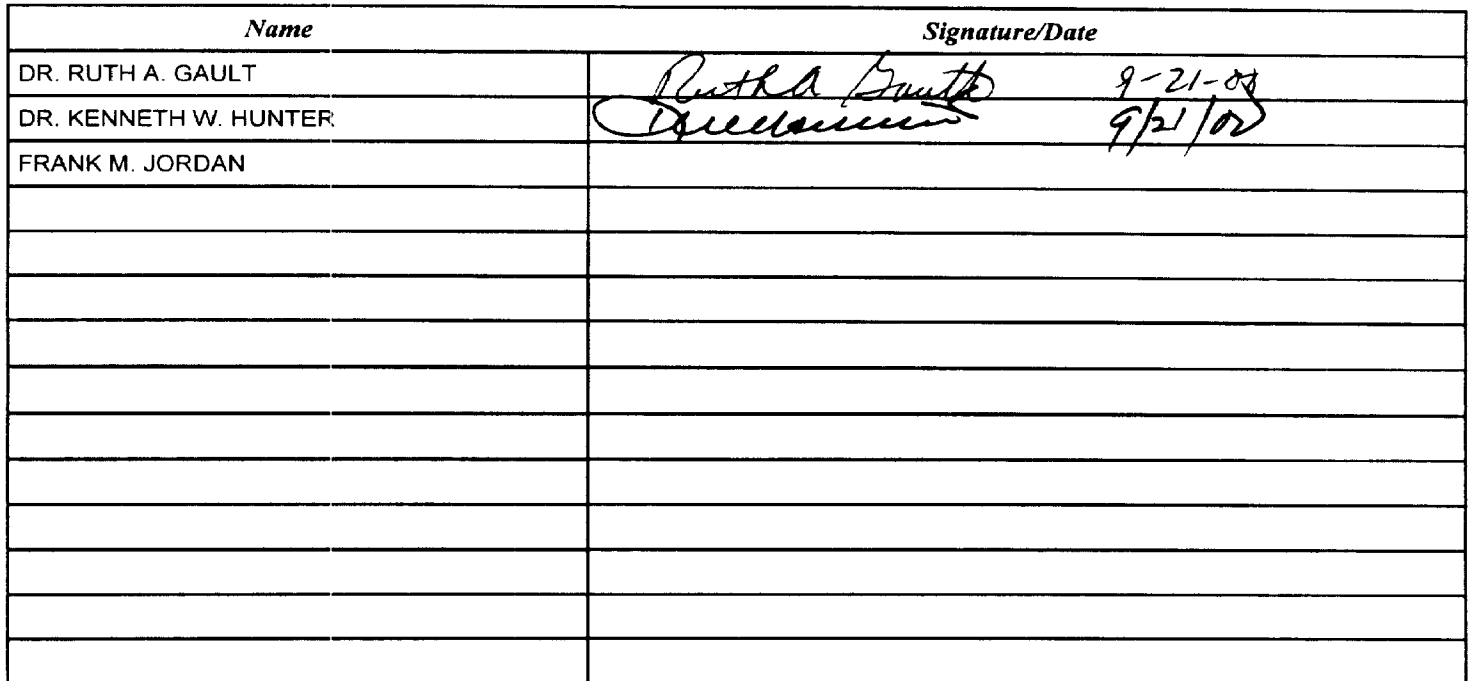 Name Signature/Date
DR. RUTH A. GAULT Ruth A Gault 9-21-00
DR. KENNETH W. HUNTER 9/21/00
FRANK M. JORDAN